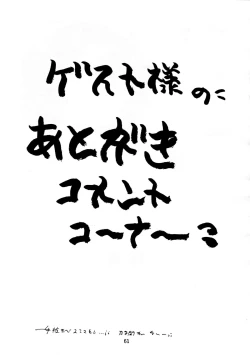 ゲスト様の
あとがき
コメント
コ〜ナ〜
61